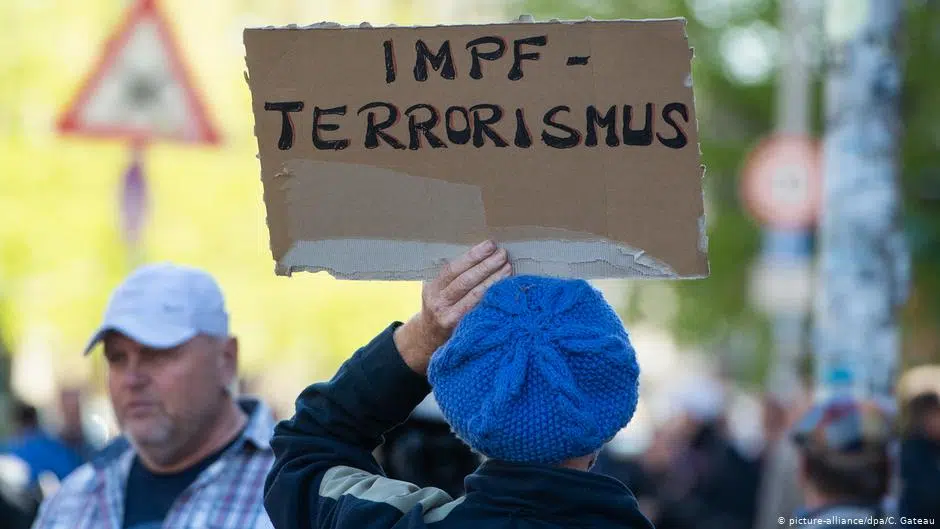 IMPF-
TERRORISMUS
© picture-alliance/dpa/C. Gateau